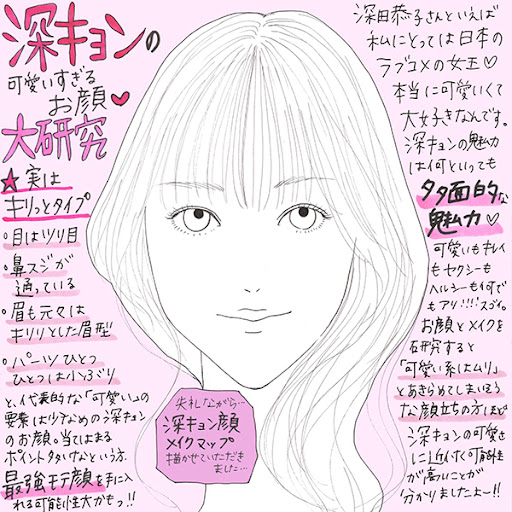 深キョンの
可愛いすぎる
お顔♥
大研究
★実は
キリっとタイプ
・目はツリ目
・鼻スジが
通っている
・眉も元々は
キリリとした眉型
・パーツひとつ
ひとつは小ぶり
と、代表的な「可愛い」の
要素は少なめの深キョン
のお顔。当てはまる
ポイント多いなという方、
最強モテ顔を手に入
れる可能性大かもっ!!
失礼ながら…
深キョン顔
メイクマップ
描かせていただき
ました…
深田恭子さんといえば
私にとっては日本の
ラブコメの女王♡
本当に可愛いくて
大好きなんです。
深キョンの魅力
は何といっても
多面的な
魅力♡
可愛いもキレイ
もセクシーも
ヘルシーも何で
もアリ!!!!スゴイ。
お顔とメイクを
研究すると
「可愛い系はムリ」
とあきらめてしまいそう
な顔立ちの方ほど
深キョンの可愛さ
に近づく可能性
が高いことが
分かりましたよー!!